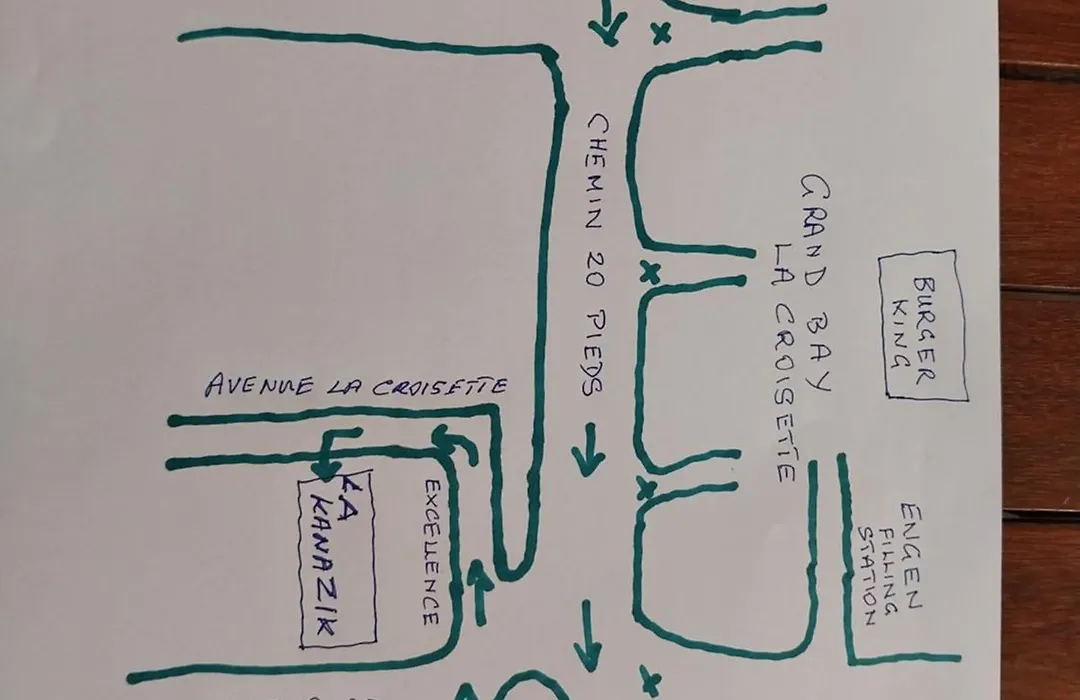 CHEMIN 20 PIEDS
GRAND BAY
LA CROISETTE
BURGER
KING
AVENUE LA CROISETTE
KA
KANAZIK
EXCELLENCE
ENGEN
FILLING
STATION